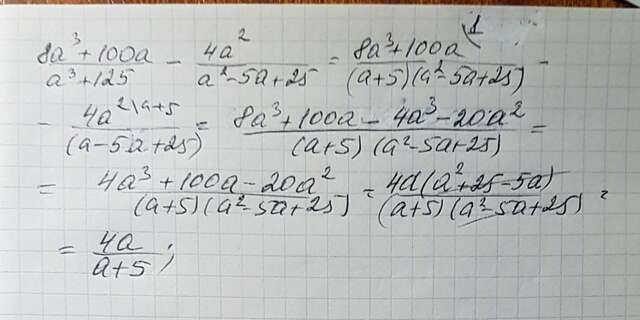 (8a³+100a)/(a³+125) - 4a²/(a²-5a+25) = (8a³+100a \1)/((a+5)(a²-5a+25)) -
- (4a² \a+5)/(a-5a+25) = (8a³+100a-4a³-20a²)/((a+5)(a²-5a+25)) =
= (4a³+100a-20a²)/((a+5)(a²-5a+25)) = (4a(a²+25-5a))/((a+5)(a²-5a+25)) =
= 4a/(a+5);